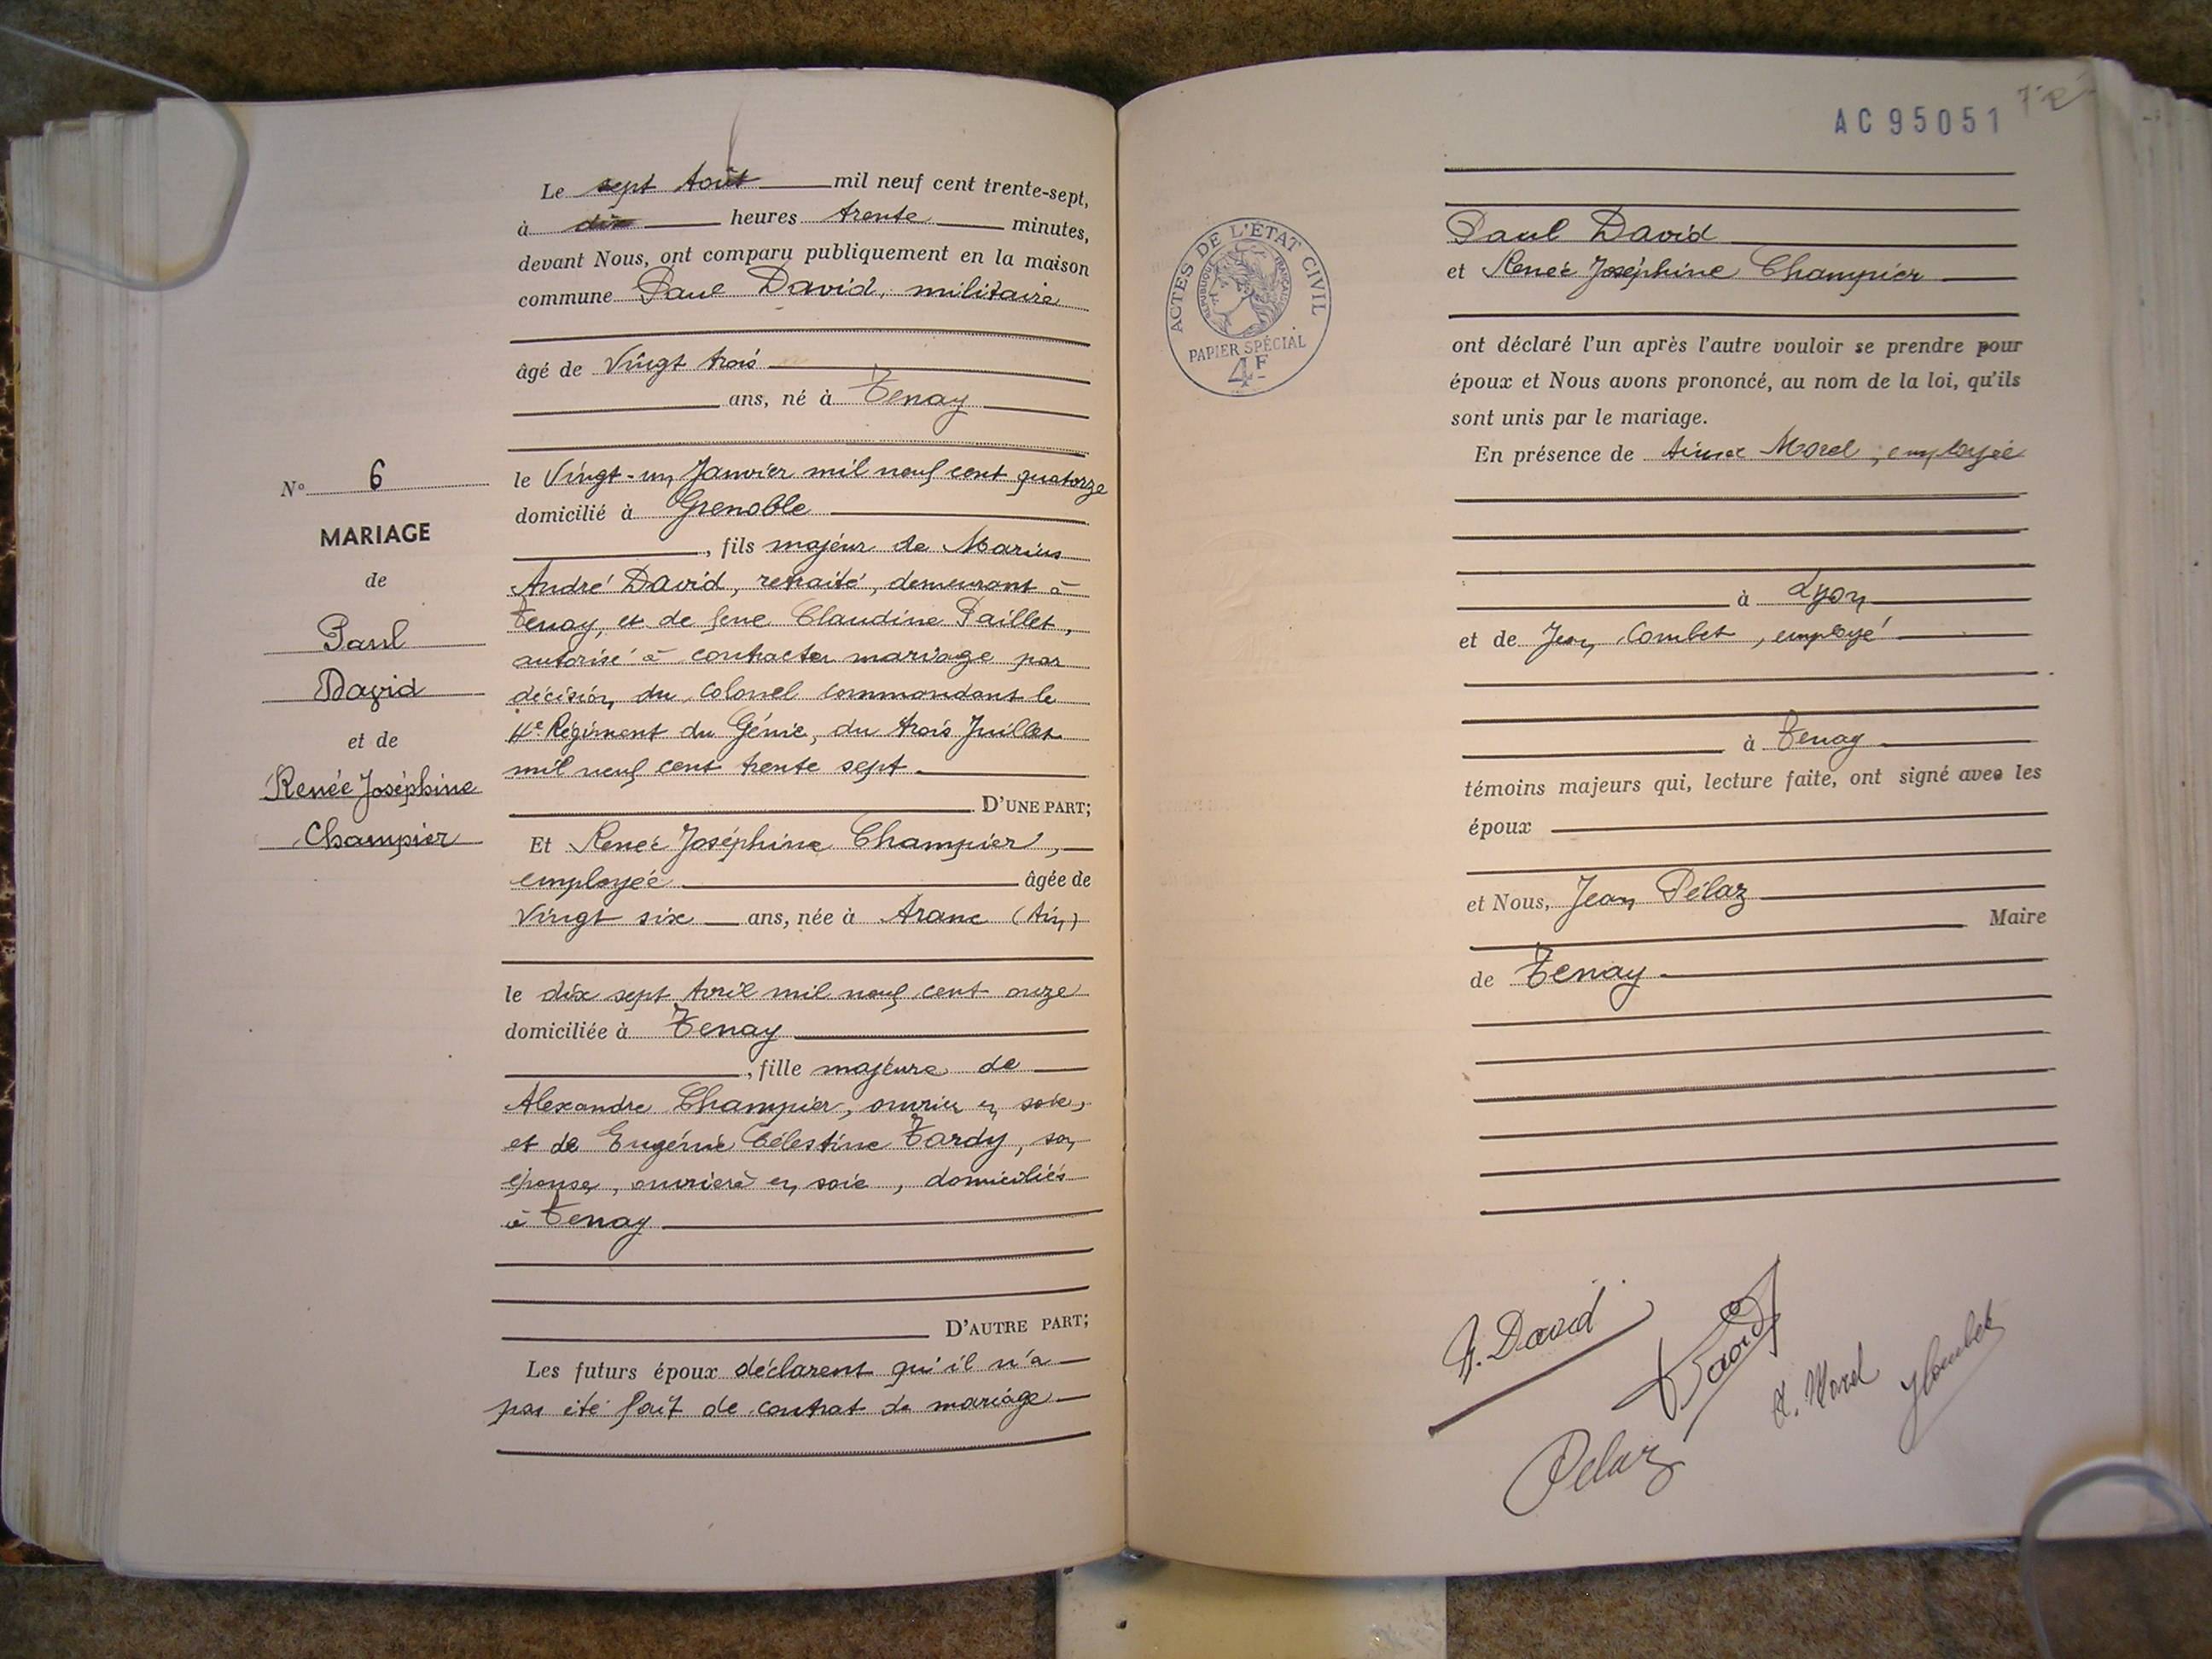 Le sept Août mil neuf cent trente-sept,
à dix heures trente minutes,
devant Nous, ont comparu publiquement en la maison
commune Paul David, militaire
âgé de Vingt trois
ans, né à Tenay
le Vingt-un Janvier mil neuf cent quatorze
domicilié à Grenoble
, fils majeur de Marius
André David, retraité, demeurant à
Tenay, et de feue Claudine Paillet,
autorisé à contracter mariage par
décision du Colonel commandant le
4e Régiment du Génie, du trois Juillet
mil neuf cent trente sept.
D'UNE PART;
Et Renée Joséphine Champier,
employée âgée de
Vingt six ans, née à Aranc (Ain)
le dix sept Avril mil neuf cent onze
domiciliée à Tenay
, fille majeure de
Alexandre Champier, ouvrier en soie,
et de Eugénie Célestine Tardy, son
épouse, ouvrière en soie, domiciliés
à Tenay
D'AUTRE PART;
Les futurs époux déclarent qu'il n'a
pas été fait de contrat de mariage
N° 6
MARIAGE
de
Paul
David
et de
Renée Joséphine
Champier
AC 95051
ACTES DE L'ÉTAT CIVIL
RÉPUBLIQUE FRANÇAISE
PAPIER SPÉCIAL
4F
Paul David
et Renée Joséphine Champier
ont déclaré l'un après l'autre vouloir se prendre pour
époux et Nous avons prononcé, au nom de la loi, qu'ils
sont unis par le mariage.
En présence de Morel, employée
à Lyon
et de Jean Combet, employé
à Tenay
témoins majeurs qui, lecture faite, ont signé avec les
époux
et Nous, Jean Pélaz
Maire
de Tenay
David
David
Morel
JCombet
Pelaz